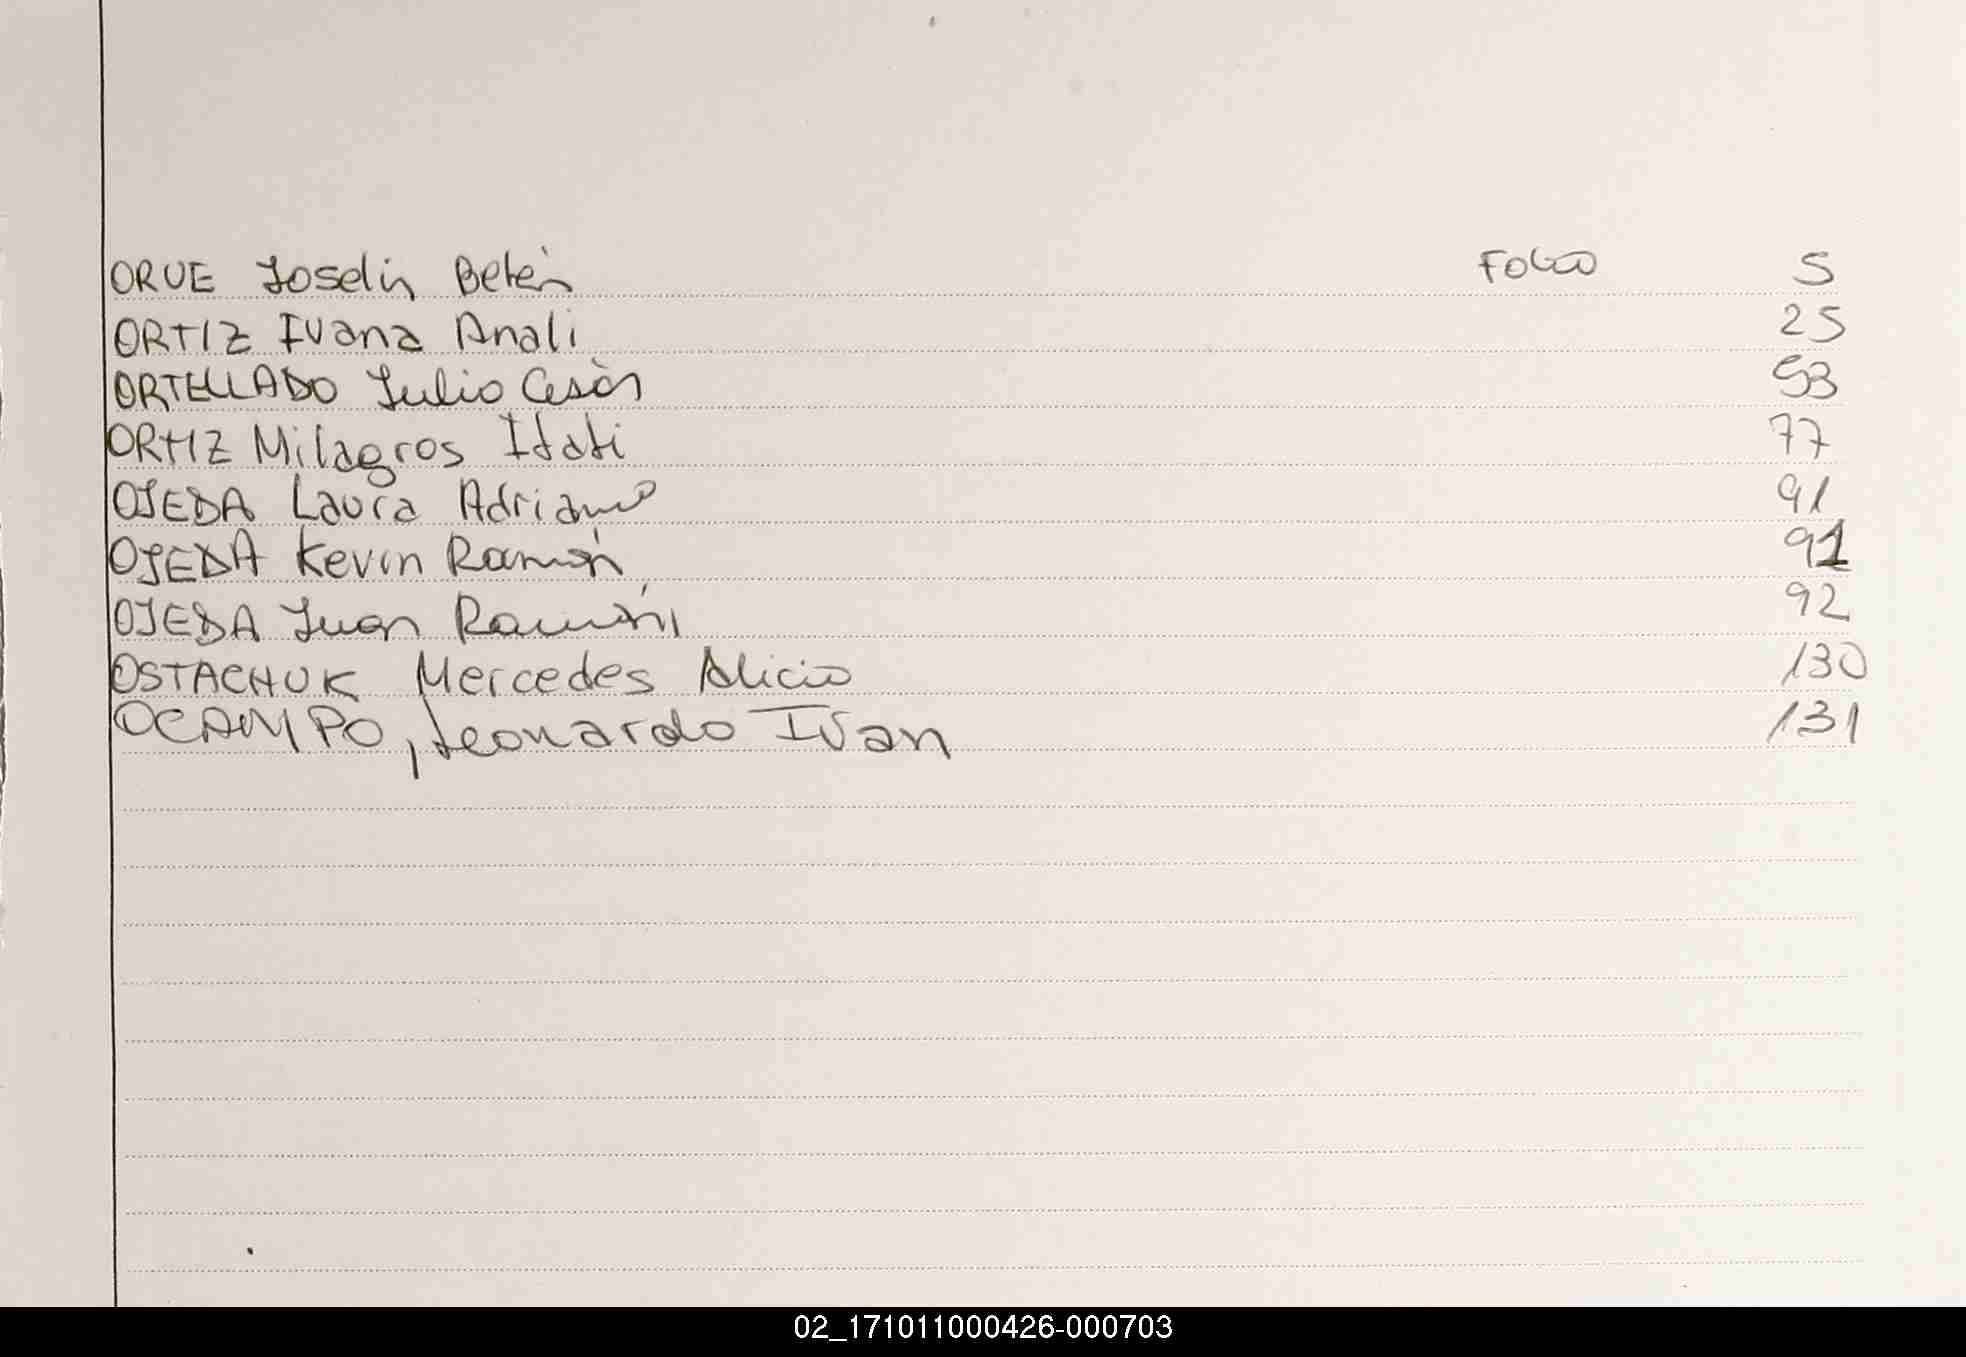 ORUE Joselin Belén FOLIO 5
ORTIZ Ivana Anali 25
ORTELLADO Julio Cesár 53
ORTIZ Milagros Itati 77
OJEDA Laura Adriana 91
OJEDA Kevin Ramón 91
OJEDA Juan Ramón 92
OSTACHUK Mercedes Alicia 130
OCAMPO, Leonardo Ivan 131
02_171011000426-000703